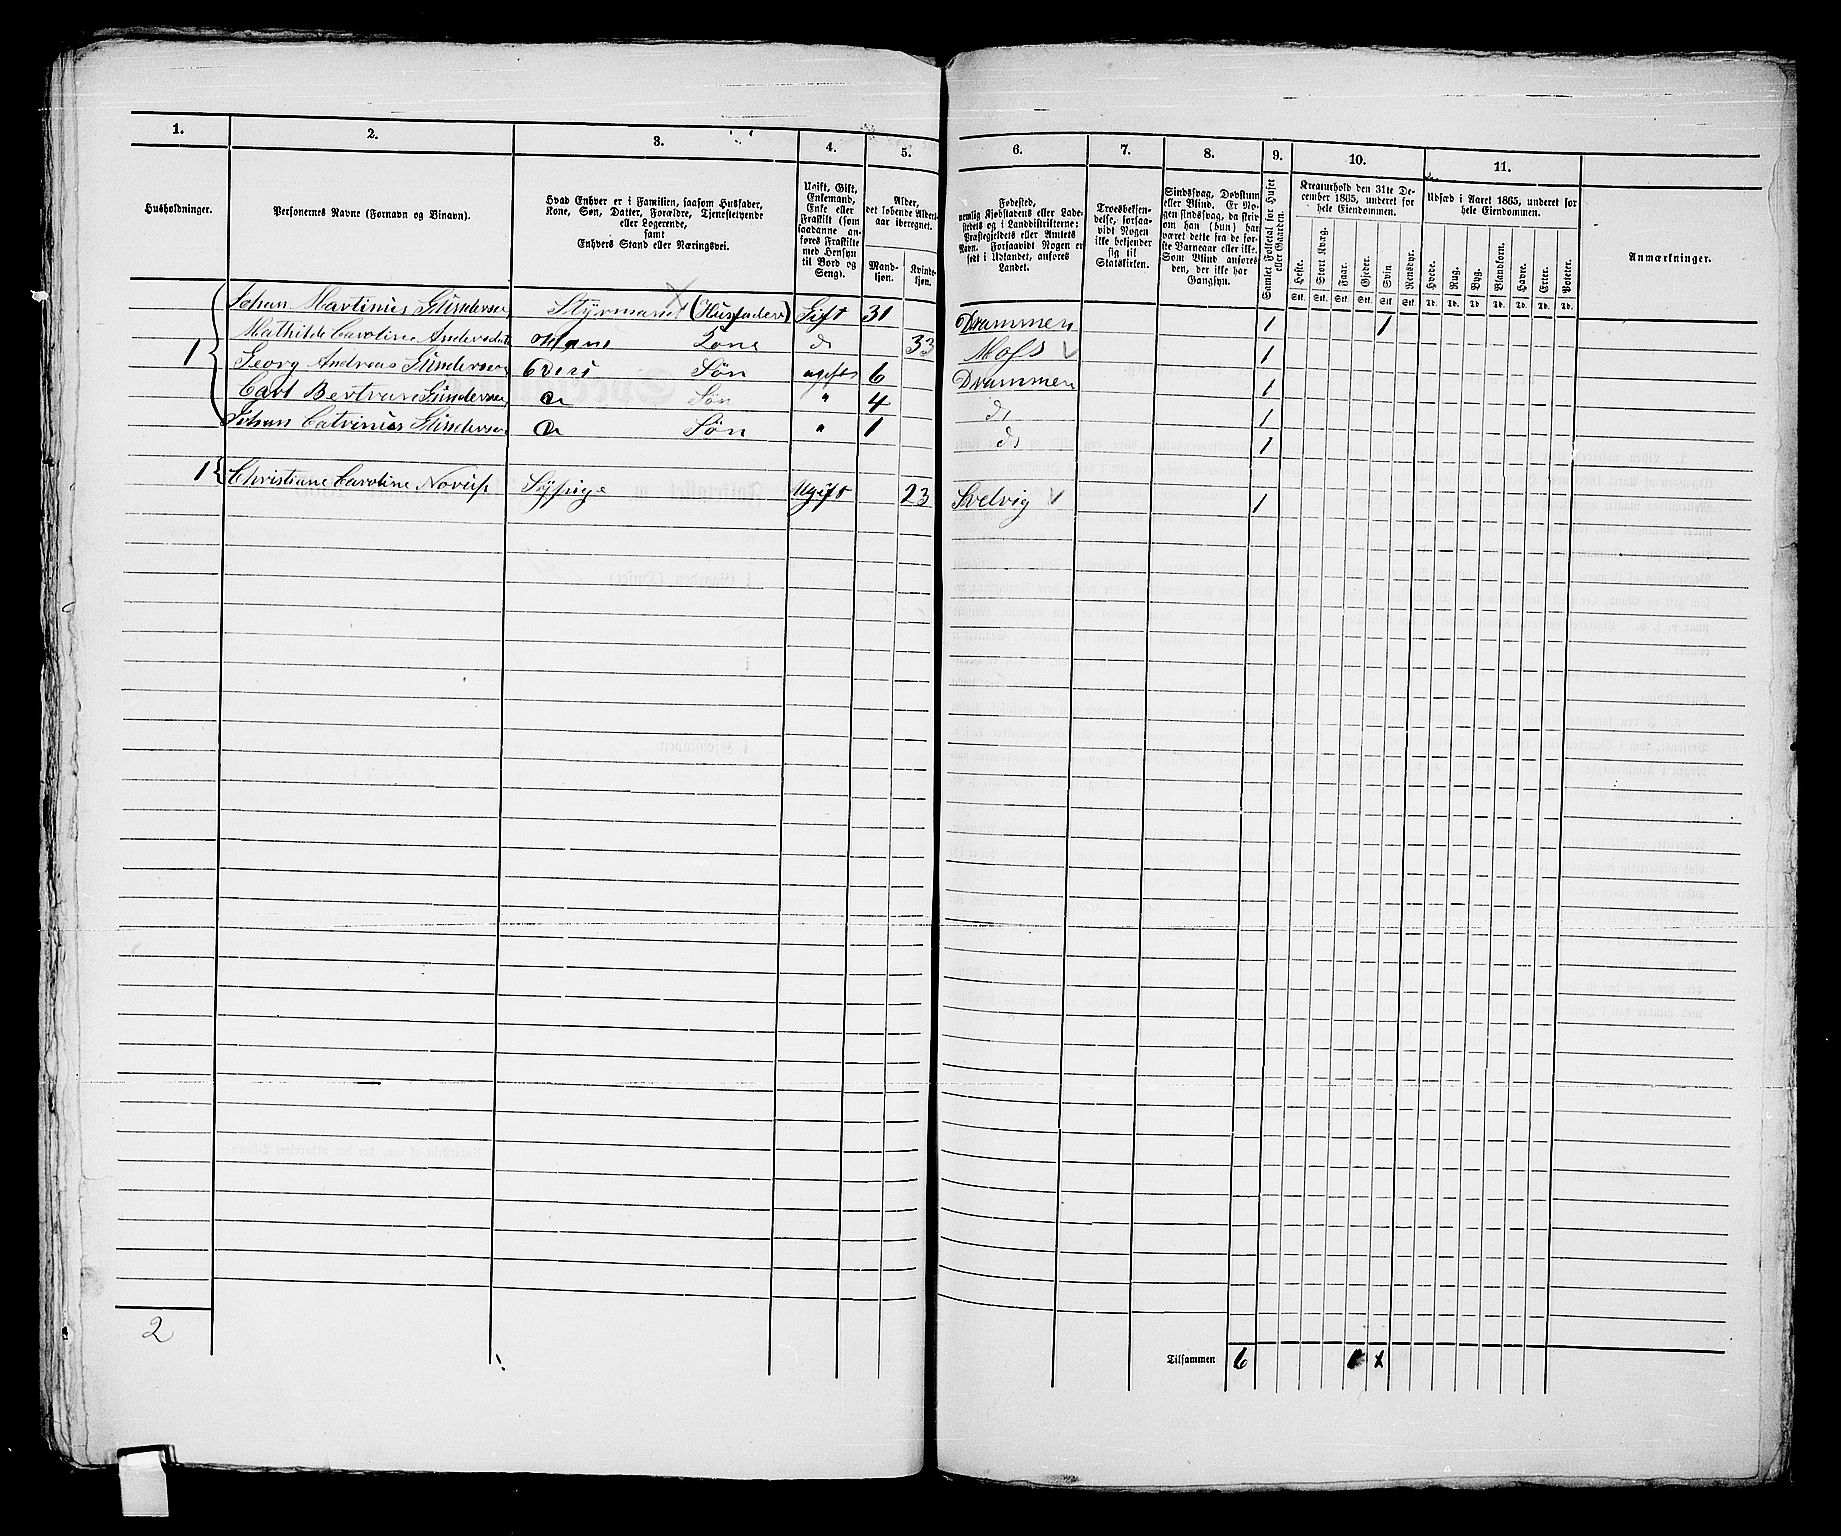 1. 2. 3. 4. 5. 6. 7. 8. 9. 10. 11.
Husholdninger.
Personernes Navne (Fornavn og Binavn).
Hvad Enhver er i Familien, saasom Husfader,
Kone, Søn, Datter, Forældre, Tjenestetyende
eller Logerende,
samt
Enhvers Stand eller Næringsvei.
Ugift, Gift,
Enkemand,
Enke eller
Fraskilt (som
saadanne an-
føres Fraskilte
med Hensyn
til Bord og
Seng).
Alder,
det løbende Alders-
aar iberegnet.
Mand-
kjøn.
Kvinde-
kjøn.
Fødested,
nemlig Kjøbstadens eller Lade-
stedets og i Landdistrikterne:
Præstegjeldets eller Amtets
Navn. Forsaavidt Nogen er
født i Udlandet, anføres
Landet.
Troesbekjen-
delse, forsaa-
vidt Nogen
ikke bekjender
sig til
Statskirken.
Sindssvag, Døvstum
eller Blind. Er No-
gen sindssvag, da skriv
om han (hun) har
været dette fra de før-
ste Barneaar eller ikke.
Som Blind anføres
den, der ikke har
Gangsyn.
Samlet Folketal for Huset
eller Gaarden.
Kreaturhold den 31te De-
cember 1865, underet for
hele Eiendommen.
Heste. Stort Kvæg. Faar. Gjeder. Svin. Rensdyr.
Stk. Stk. Stk. Stk. Stk. Stk.
Udsæd i Aaret 1865, underet for
hele Eiendommen.
Hvede. Rug. Byg. Blandkorn. Havre. Erter. Poteter.
Td. Td. Td. Td. Td. Td. Td.
Anmærkninger.
Johan Martinius Gundersen Styrmand (Husfader) Gift 31 Drammen 1 1
1 Mathilde Caroline Andersdat Hans Kone do 33 Moss 1
Georg Andreas Gundersen Deres Søn ugift 6 Drammen 1
Carl Bertran Gundersen Søn " 4 do 1
Johan Catrinius Gundersen Søn " 1 do 1
1 Christiane Caroline Sÿpige Ugift 23 Svelvig 1
2
Tilsammen 6